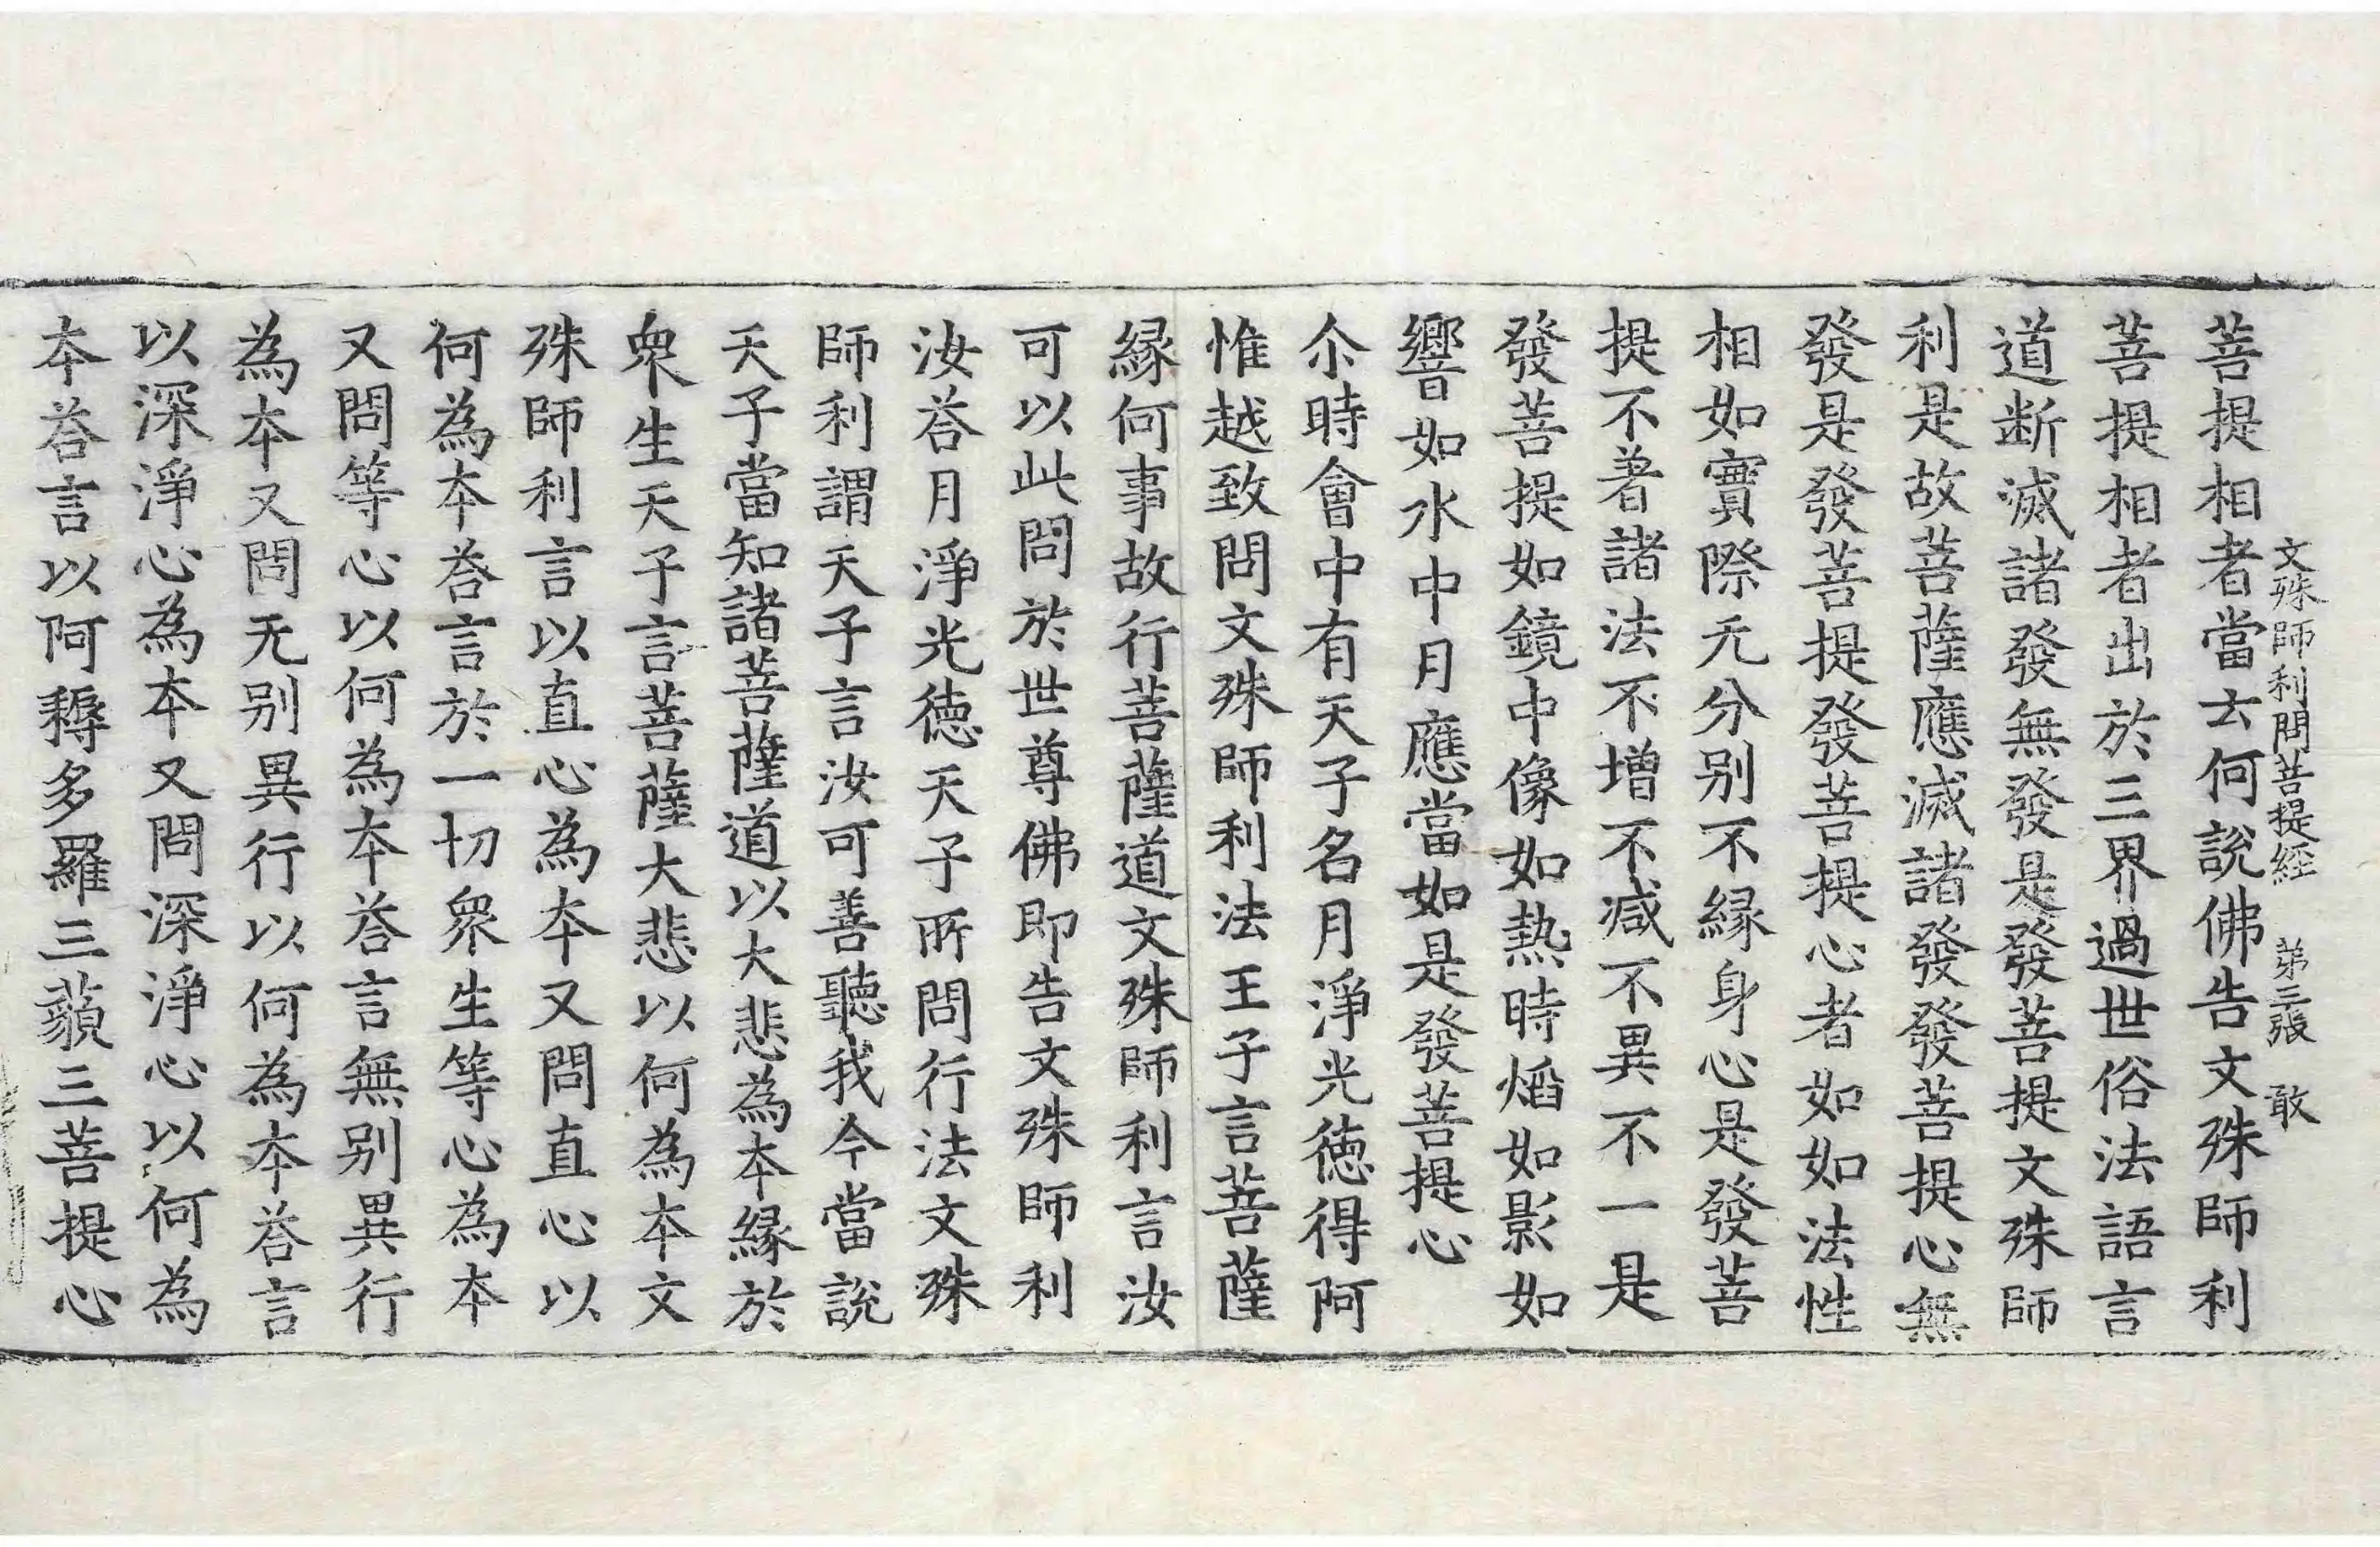 文殊師利問菩提經 弟三張 敢
菩提相者當云何說佛告文殊師利
菩提相者出於三界過世俗法語言
道断滅諸發無發是發菩提文殊師
利是故菩薩應滅諸發發菩提心無
發是發菩提發菩提心者如如法性
相如實際无分别不縁身心是發菩
提不著諸法不增不减不異不一是
發菩提如鏡中像如熱時焰如影如
響如水中月應當如是發菩提心
尒時會中有天子名月淨光德得阿
惟越致問文殊師利法王子言菩薩
縁何事故行菩薩道文殊師利言汝
可以此問於世尊佛即告文殊師利
汝荅月淨光德天子所問行法文殊
師利謂天子言汝可善聽我今當說
天子當知諸菩薩道以大悲為本縁於
衆生天子言菩薩大悲以何為本文
殊師利言以直心為本又問直心以
何為本荅言於一切衆生等心為本
又問等心以何為本荅言無别異行
為本又問无别異行以何為本荅言
以深淨心為本又問深淨心以何為
本荅言以阿耨多羅三藐三菩提心